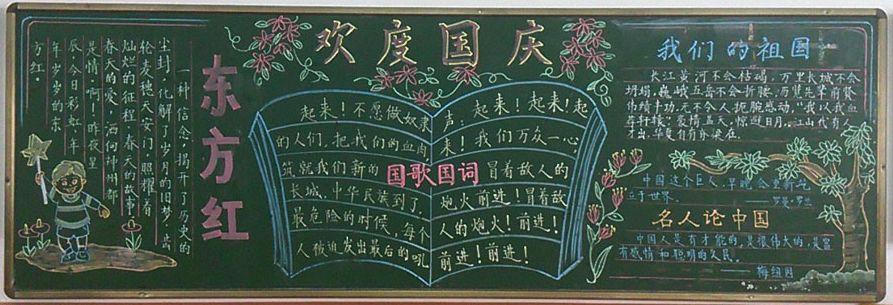 欢度国庆
东方红
一种信念，揭开了历史的
尘封，化解了岁月的旧梦，齿
轮麦穗天安门，照耀着
灿烂的征程，春天的故事
春天的爱，洒向神州都
是情。啊！昨夜星
辰，今日彩虹，年
年岁岁的东
方红。
国歌国词
起来！不愿做奴隶
的人们，把我们的血肉
筑就我们新的
长城，中华民族到了，
最危险的时候，每个
人被迫发出最后的吼
声，起来！起来！起
来！我们万众一心
冒着敌人的
炮火前进！冒着敌
人的炮火！前进！
前进！前进！
我们的祖国
长江黄河不会枯竭，万里长城不会
坍塌，巍峨五岳不会折腰，历览先辈前贤
伟绩丰功，无不令人扼腕感动，"我以我血
荐轩辕，豪情盖天，日月。江山代有人
才出，华夏自有梁在。
中国这个巨人，早晚会重新屹
立于世界。——罗曼·罗兰
名人论中国
中国人是有才能的，是很伟大的，是富
有感情和聪明的人民。
——梅纽因